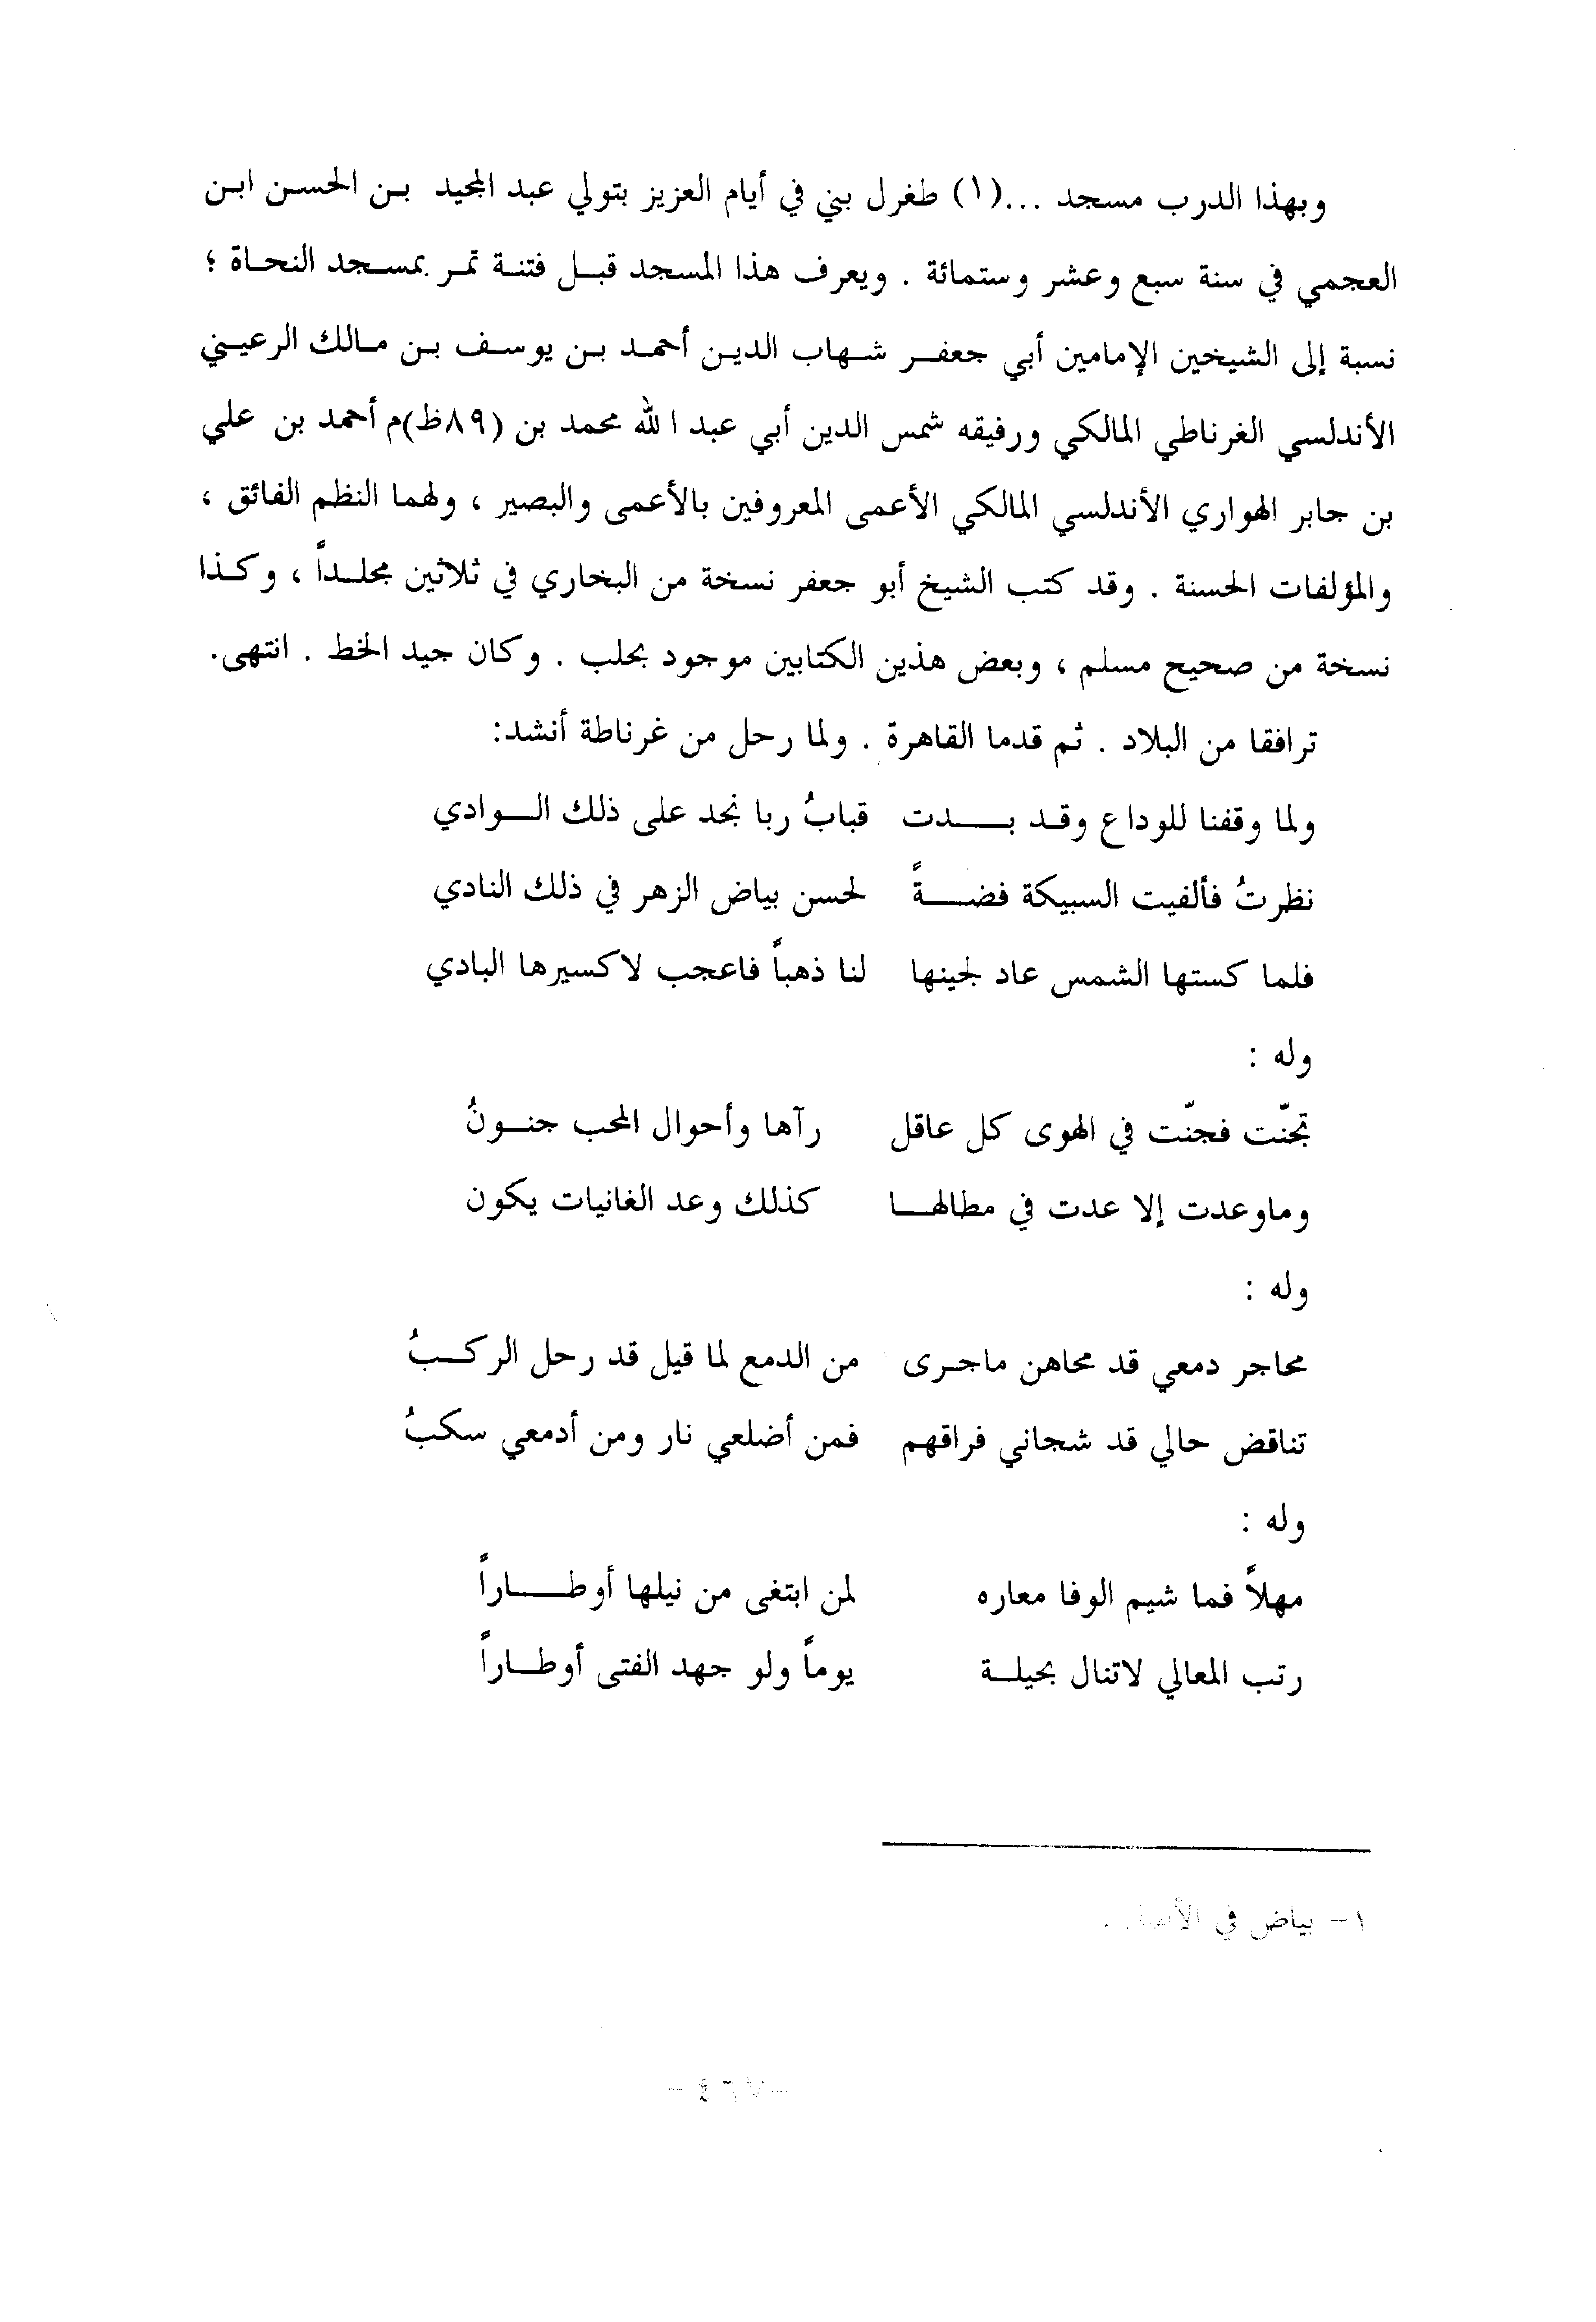 وبهذا الدرب مسجد ...(١) طغرل بني في أيام العزيز بتولي عبد المجيد بن الحسن ابن
العجمي في سنة سبع وعشر وستمائة . ويعرف هذا المسجد قبل فتنة تمر بمسجد النحاة ؛
نسبة إلى الشيخين الإمامين أبي جعفر شهاب الدين أحمد بن يوسف بن مالك الرعيني
الأندلسي الغرناطي المالكي ورفيقه شمس الدين أبي عبد الله محمد بن (٨٩ظ)م أحمد بن علي
بن جابر الهواري الأندلسي المالكي الأعمى المعروفين بالأعمى والبصير ، ولهما النظم الفائق ،
والمؤلفات الحسنة . وقد كتب الشيخ أبو جعفر نسخة من البخاري في ثلاثين مجلداً ، وكذا
نسخة من صحيح مسلم ، وبعض هذين الكتابين موجود بحلب . وكان جيد الخط . انتهى.
ترافقا من البلاد . ثم قدما القاهرة . ولما رحل من غرناطة أنشد:
ولما وقفنا للوداع وقد بدت قبابُ ربا نجد على ذلك الوادي
نظرتُ فألفيت السبيكة فضةً لحسن بياض الزهر في ذلك النادي
فلما كستها الشمس عاد لجينها لنا ذهباً فاعجب لاكسيرها البادي
وله :
تجنّت فجنّت في الهوى كل عاقل رآها وأحوال المحب جنونُ
وماوعدت إلا عدت في مطالها كذلك وعد الغانيات يكون
وله :
محاجر دمعي قد محاهن ماجرى من الدمع لما قيل قد رحل الركبُ
تناقض حالي قد شجاني فراقهم فمن أضلعي نار ومن أدمعي سكبُ
وله :
مهلاً فما شيم الوفا معاره لمن ابتغى من نيلها أوطاراً
رتب المعالي لاتنال بحيلة يوماً ولو جهد الفتى أوطاراً
١- بياض في الأصل .
-٤٦٧-